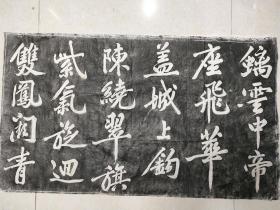 鎬雲中帝
座飛華
蓋城上鈎
陳繞翠旗
紫氣旋迴
雙鳳闕青